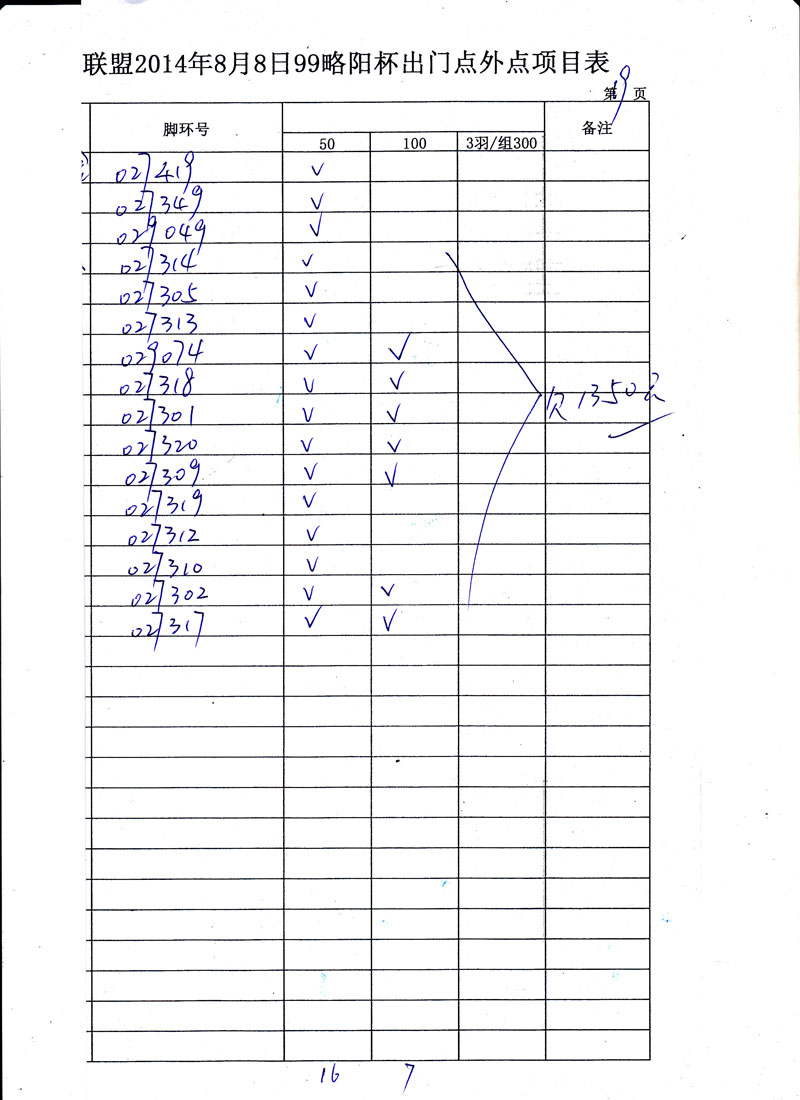 联盟2014年8月8日99略阳杯出门点外点项目表
第19页
脚环号 50 100 3羽/组300 备注
027419 ✓
027349 ✓
029049 ✓
027314 ✓
027305 ✓
027313 ✓
029074 ✓ ✓
027318 ✓ ✓
027301 ✓ ✓ 欠1350元
027320 ✓ ✓
027309 ✓ ✓
027319 ✓
027312 ✓
027310 ✓
027302 ✓ ✓
027317 ✓ ✓
16 7